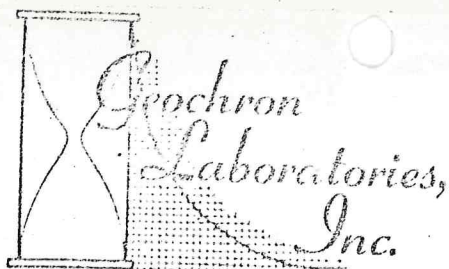 Geochron
Laboratories,
Inc.